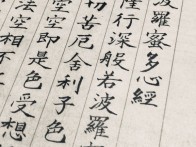 波羅蜜多心經
薩行深般若波羅
切苦厄舍利子色
空空即是色受想
法空相不